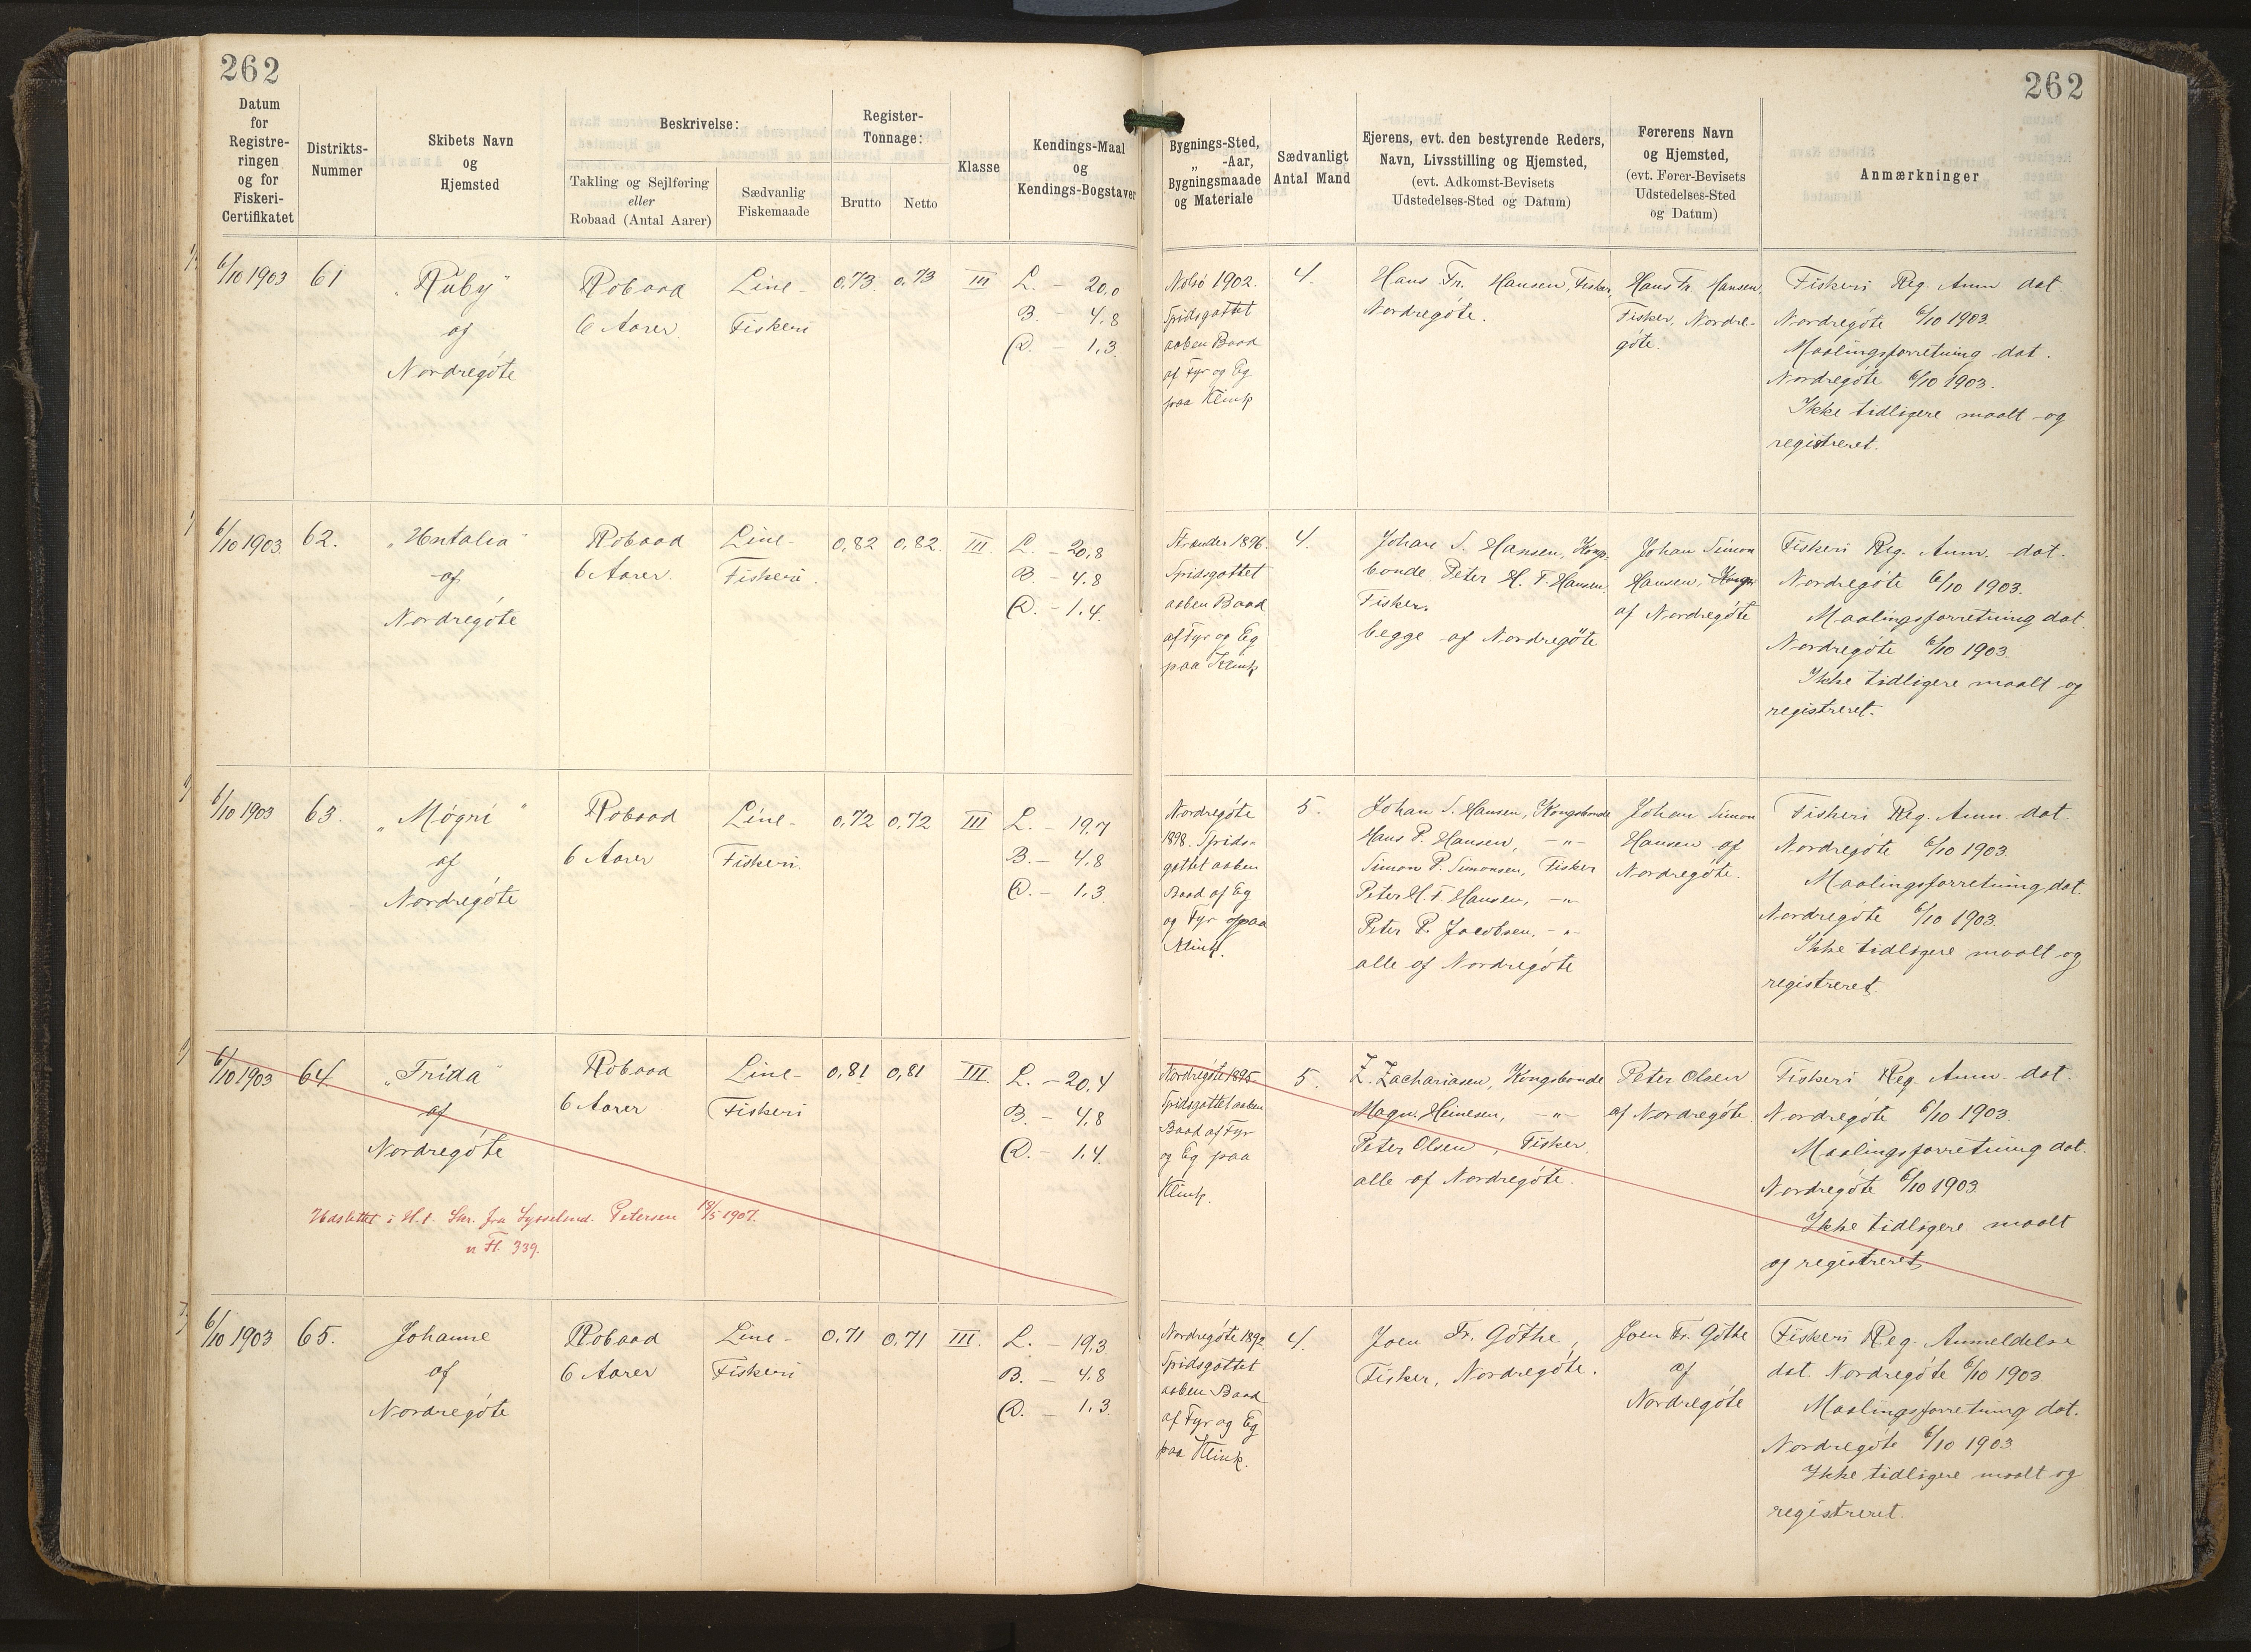 262
262
Datum
for
Registre-
ringen
og for
Fiskeri-
Certifikatet
Distrikts-
Nummer
Skibets Navn
og
Hjemsted
Beskrivelse:
Takling og Sejlføring
eller
Robaad (Antal Aarer)
Sædvanlig
Fiskemaade
Register-
Tonnage:
Brutto
Netto
Klasse
Kendings-Maal
og
Kendings-Bogstaver
Bygnings-Sted,
„ -Aar,
Bygningsmaade
og Materiale
Sædvanligt
Antal Mand
Ejerens, evt. den bestyrende Reders,
Navn, Livsstilling og Hjemsted,
(evt. Adkomst-Bevisets
Udstedelses-Sted og Datum)
Førerens Navn
og Hjemsted,
(evt. Fører-Bevisets
Udstedelses-Sted
og Datum)
Anmærkninger
6/10 1903
61
„Ruby"
af
Nordregóte
Robaad
6 Aarer
Line-
Fiskeri
0,73
0,73
III
L. - 20,0
B. - 4,8
D. - 1,3
Nolsö 1902.
Spidsgattet
aaben Baad
af Fyr og Eg
paa Klink
4.
Hans Fr. Hansen, Fisker,
Nordregóte.
Hans Fr. Hansen,
Fisker, Nordre-
góte.
Fiskeri Reg. Anm. dat.
Nordregóte 6/10 1903.
Maalingsforretning dat.
Nordregóte 6/10 1903.
Ikke tidligere maalt og
registreret.
6/10 1903.
62.
af
Nordregóte
Robaad
6 Aarer.
Line-
Fiskeri.
0,82
0,82.
III.
L. - 20,8
B. - 4,8
D. - 1,4.
Strænder 1896.
Spidsgattet
aaben Baad
af Fyr og Eg
paa Klink
4.
Johan S. Hansen, Kongs-
bonde, Peter H. F. Hansen,
Fisker.
begge af Nordregöte
Johan Simon
Hansen,
af Nordregóte
Fiskeri Reg. Anm. dat.
Nordregóte 6/10 1903.
Maalingsforretning dat.
Nordregóte 6/10 1903.
Ikke tidligere maalt og
registreret.
6/10 1903
63.
„Mógri"
af
Nordregóte
Robaad
6 Aarer
Line-
Fiskeri.
0,72
0,72
III
L. - 19,7
B. - 4,8
D. - 1,3
Nordregóte
1898. Spids-
gattet aaben
Baad af Eg
og Fyr paa
Klink.
5.
Johan S. Hansen, Kongsbonde
Hans P. Hansen, -„-
Simon P. Simonsen, Fisker
Peter H. F. Hansen, -„-
Peter P. Jacobsen, -„-
alle af Nordregóte
Johan Simon
Hansen af
Nordregóte.
Fiskeri Reg. Anm. dat.
Nordregóte 6/10 1903.
Maalingsforretning dat.
Nordregóte 6/10 1903.
Ikke tidligere maalt og
registreret.
6/10 1903
64.
„Frida"
af
Nordregóte
Robaad
6 Aarer
Line-
Fiskeri
0,81
0,81
III.
L. - 20,4
B. - 4,8
D. - 1,4.
Nordregóte 1895.
Spidsgattet aaben
Baad af Fyr
og Eg paa
Klink.
5.
Z. Zachariasen, Kongsbonde
Magn. Heinesen, -„-
Peter Olsen, Fisker.
alle af Nordregóte.
Peter Olsen
af Nordregóte.
Fiskeri Reg. Anm. dat.
Nordregóte 6/10 1903.
Maalingsforretning dat.
Nordregóte 6/10 1903.
Ikke tidligere maalt
og registreret.
Udslettet i H. t. Skr. fra Sysselmd. Petersen /5 1907.
Fl. 339.
6/10 1903
65.
Johanne
af
Nordregóte
Robaad
6 Aarer
Line-
Fiskeri
0,71
0,71
III.
L. - 19,3
B. - 4,8
D. - 1,3.
Nordregóte 1892.
Spidsgattet
aaben Baad
af Fyr og Eg
paa Klink.
4.
Joen Fr. Góthe,
Fisker, Nordregóte.
Joen Fr. Góthe
af
Nordregóte
Fiskeri Reg. Anmeldelse
dat. Nordregóte 6/10 1903.
Maalingsforretning dat.
Nordregóte 6/10 1903.
Ikke tidligere maalt og
registreret.